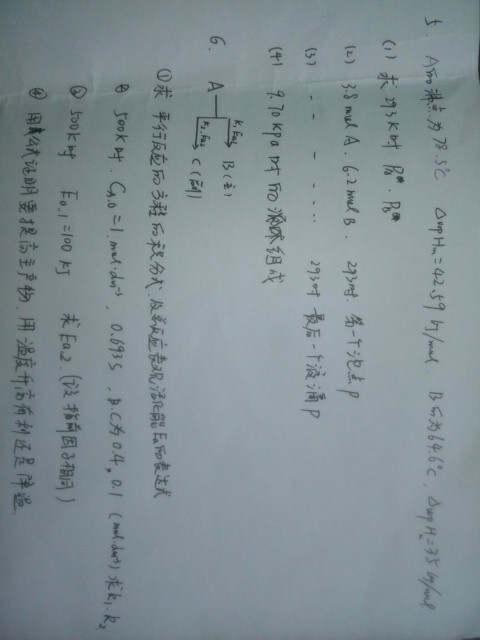 5. A的沸点为78.5℃ ΔvapHm=42.59 kJ/mol B的为64.6℃. ΔvapHm=35 kJ/mol
(1) 求 293K时 PA* . PB*
(2) 3.8mol A. 6.2mol B. 293时. 第一个泡点P
(3) - - - - ‥ 293时 最后一个液滴P
(4) 9.70kpa时的 组成
6. A
k1,Ea1 B(主)
k2,Ea2 C(副)
① 求 平行反应的方程的积分式. 及总反应表观活化能Ea的表达式
② 500K时. CA,0=1. mol·dm⁻³. 0.693s . B.C为0.4, 0.1 (mol·dm⁻³) 求k1. k2
③ 500K时 Ea,1=100 kJ 求Ea2. (设指前因子相同)
④ 用 证明要提高主产物. 用 温度升高有利还是降温